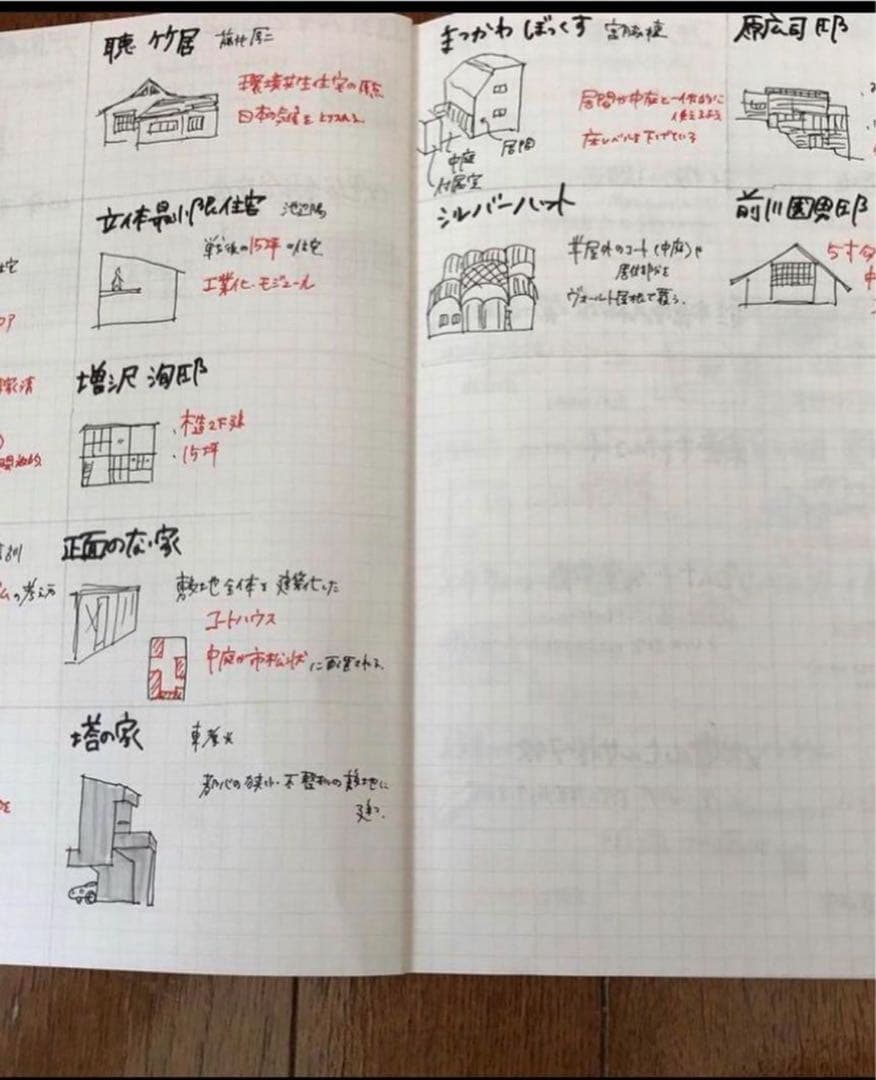 聴竹居 藤井厚二
環境共生住宅の原点
日本の気候を
立体最小限住宅 池辺陽
戦後の15坪の住宅
工業化・モジュール
増沢洵邸
・木造2F建
・15坪
正面のない家
敷地全体を建築化した
コートハウス
中庭が市松状に配置される
塔の家 東孝光
都心の狭小・不整形の敷地に
建つ.
の考え方
まつかわぼっくす 宮脇檀
居間が中庭と一体的に
使えるよう
床レベルを下げている
居間
中庭
付属室
シルバーハット
半屋外のコート(中庭)や
居住部分を
ヴォールト屋根で覆う.
原広司邸
前川國男邸
5寸